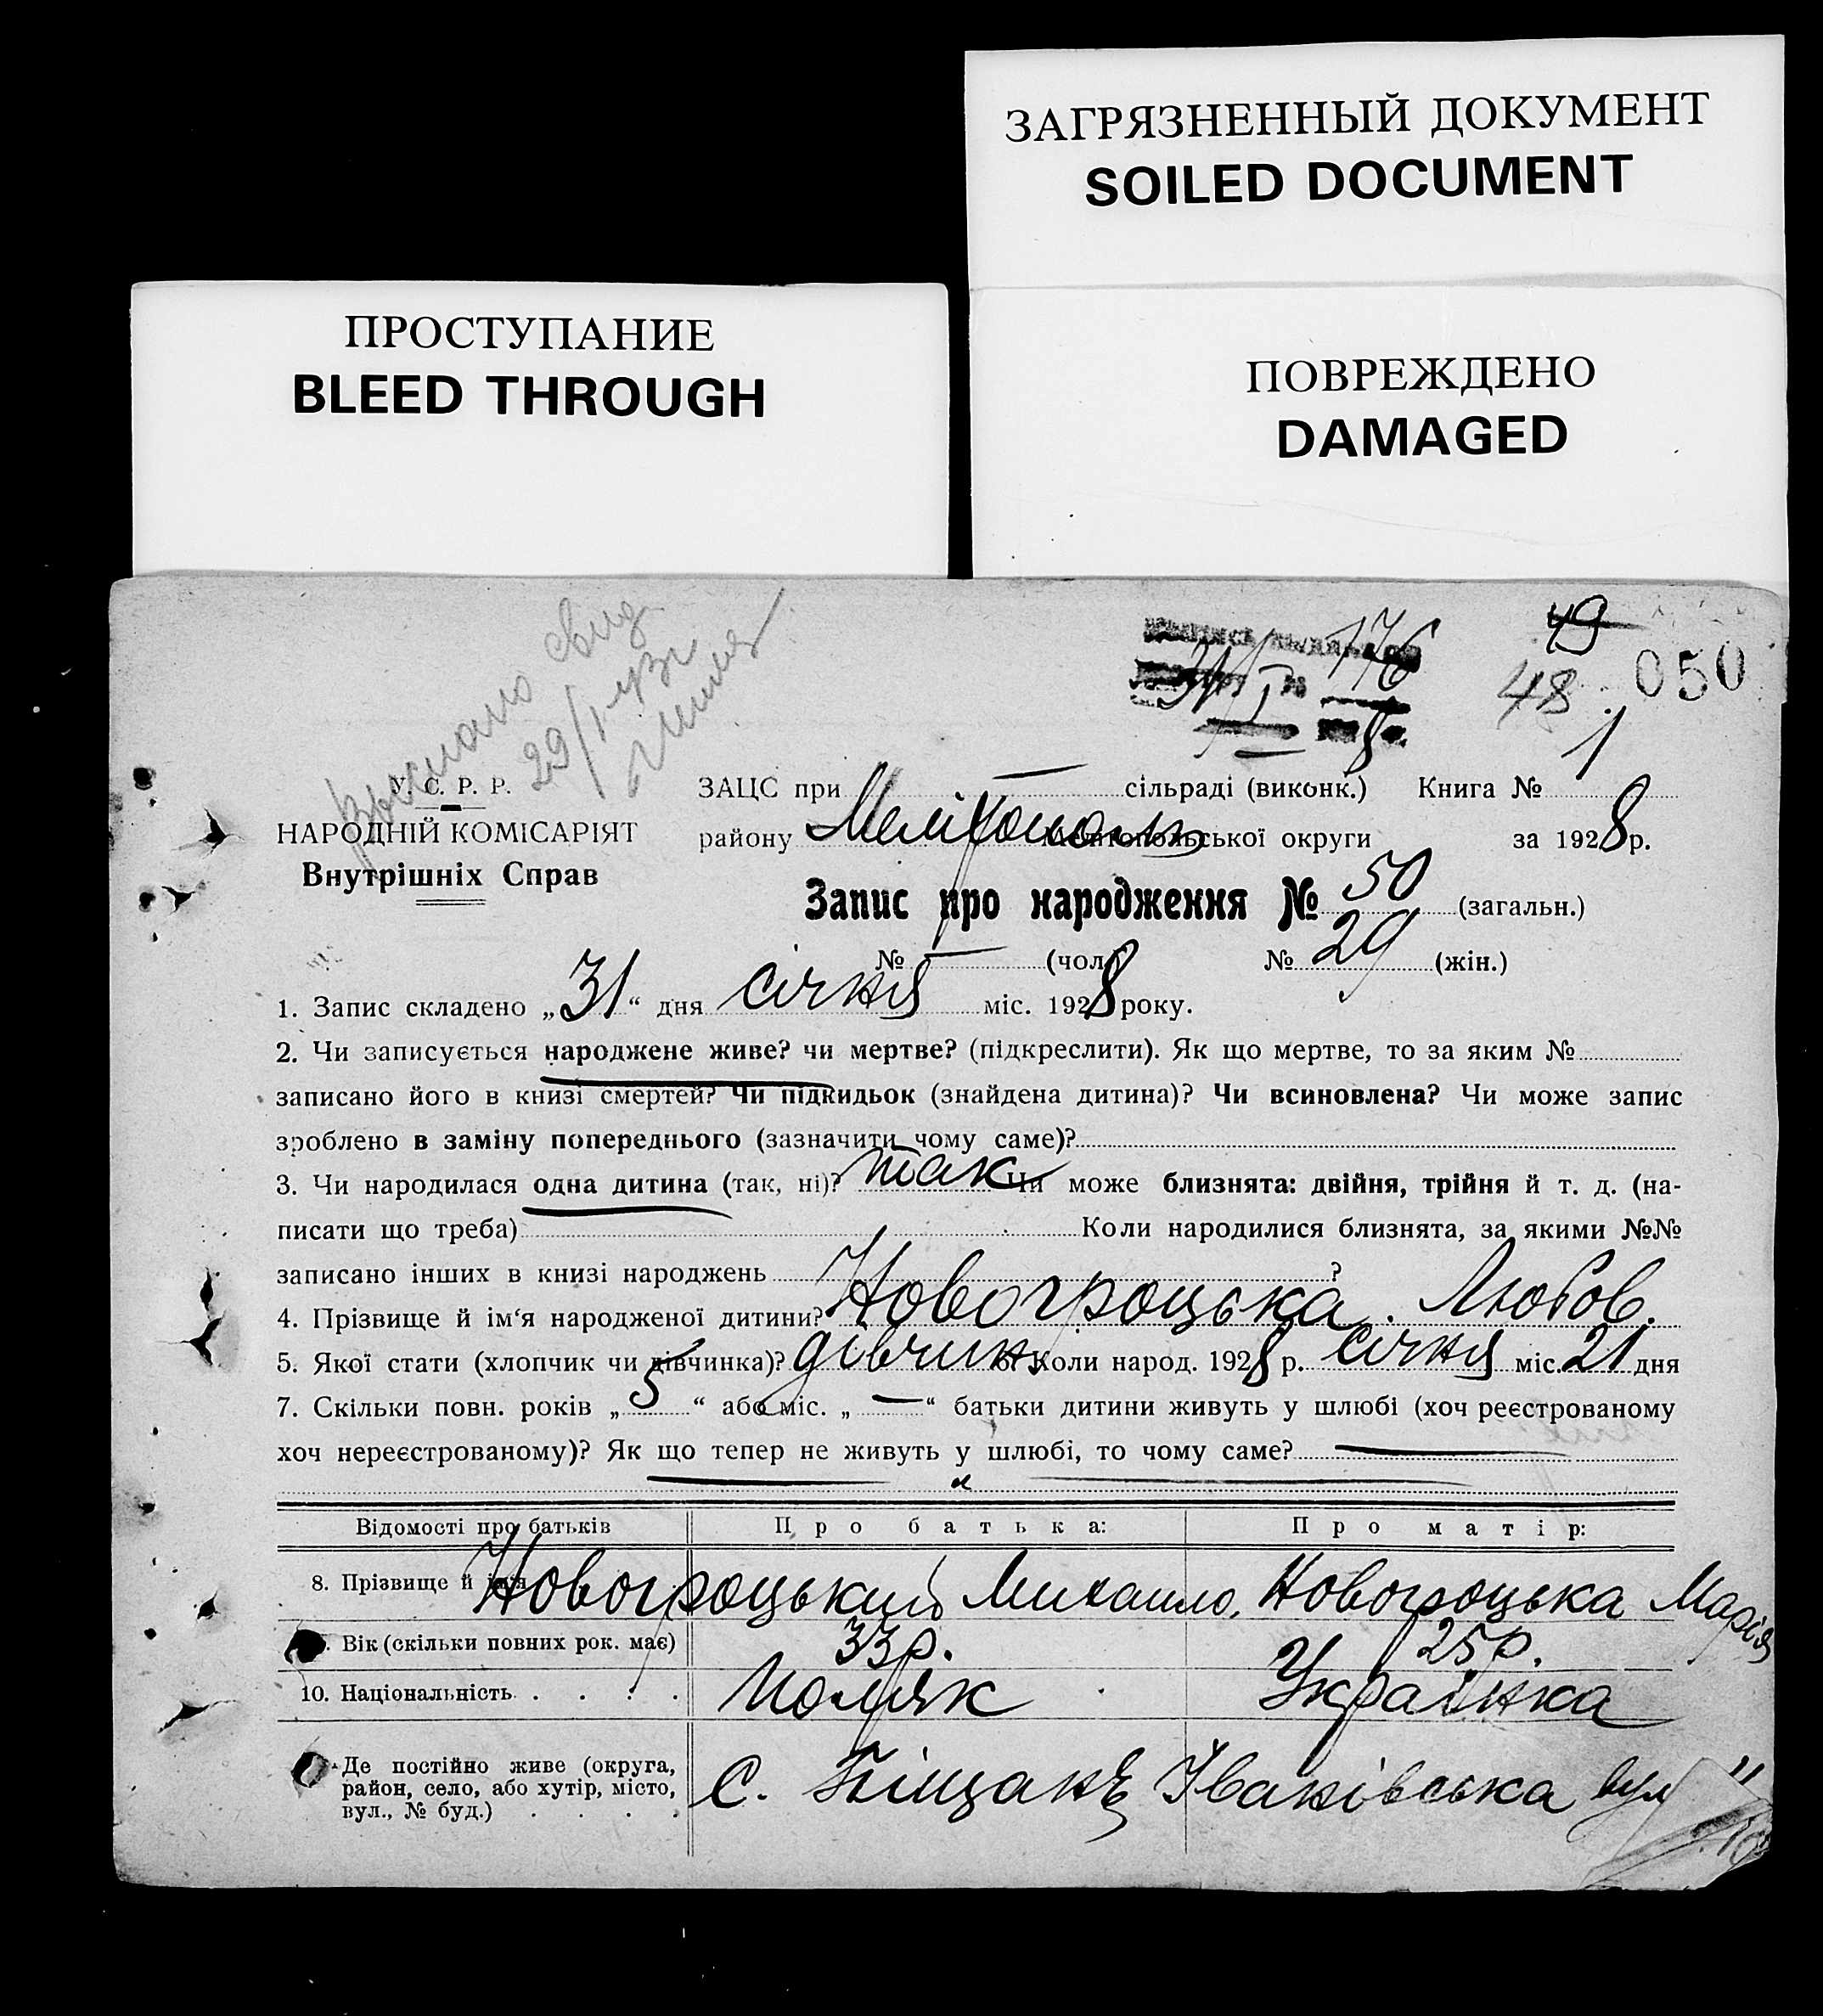 ЗАГРЯЗНЕННЫЙ ДОКУМЕНТ
SOILED DOCUMENT
ПРОСТУПАНИЕ
BLEED THROUGH
ПОВРЕЖДЕНО
DAMAGED
49
176
31/I
48
050
8
29/I
У. С. Р. Р.
НАРОДНІЙ КОМІСАРІЯТ
Внутрішніх Справ
ЗАЦС при — сільраді (виконк.) Книга № 1
району Мелітополь Мелітопольської округи за 1928 р.
Запис про народження № 50 (загальн.)
№ — (чол.) № 29 (жін.)
1. Запис складено „31“ дня січня міс. 1928 року.
2. Чи записується народжене живе? чи мертве? (підкреслити). Як що мертве, то за яким №
записано його в книзі смертей? Чи підкидьок (знайдена дитина)? Чи всиновлена? Чи може запис
зроблено в заміну попереднього (зазначити чому саме)?
3. Чи народилася одна дитина (так, ні)? так Чи може близнята: двійня, трійня й т. д. (на-
писати що треба) Коли народилися близнята, за якими №№
записано інших в книзі народжень ?
4. Прізвище й ім‘я народженої дитини? Новогроцька Любов.
5. Якої стати (хлопчик чи дівчинка)? дівчин. 6. Коли народ. 1928 р. січня міс. 21 дня
7. Скільки повн. років „5“ або міс. „—“ батьки дитини живуть у шлюбі (хоч реєстрованому
хоч нереєстрованому)? Як що тепер не живуть у шлюбі, то чому саме? —
Відомості про батьків Про батька: Про матір:
8. Прізвище й ім‘я Новогроцький Михаило, Новогроцька Марія
Вік (скільки повних рок. має) 33 р. 25 р.
10. Національність Поляк Українка
Де постійно живе (округа,
район, село, або хутір, місто,
вул., № буд.)
С. Піщане Іванівська вул